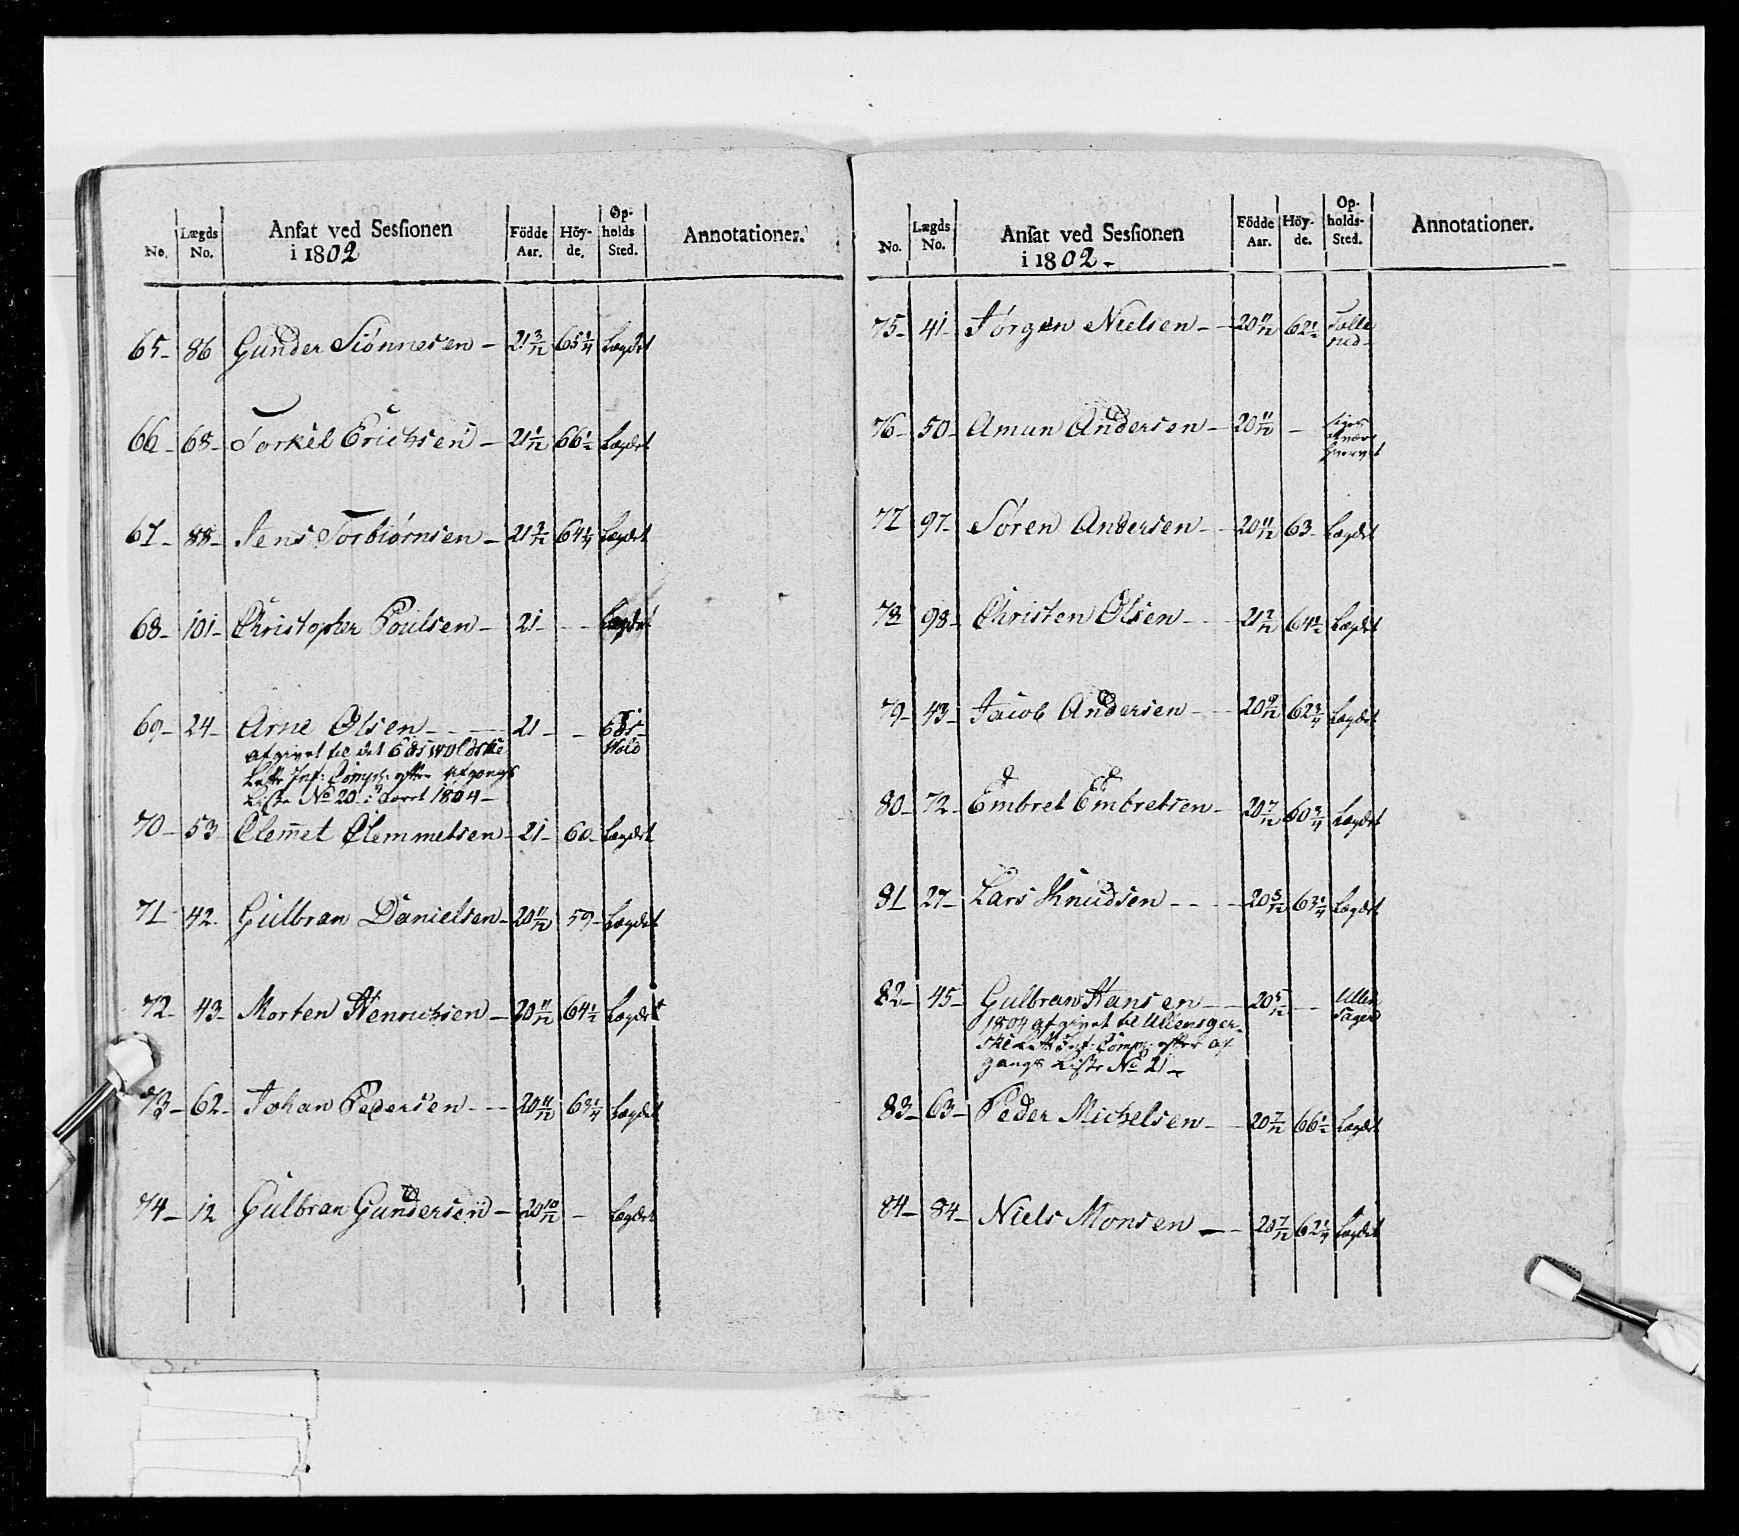 No. Lægds No. Ansat ved Sessionen i 1802 Födde Aar. Höyde. Opholds Sted. Annotationer.
65 - 86 Gunder Siönnesen - 21 3/12 65 1/4 Lægdet
66 - 68 - Torkel Erichsen - 21 1/12 66 1/2 Lægdet
67 - 88 - Jens Torbiørnsen - 21 3/12 64 1/4 Lægdet
68 - 101 - Christopher Poulsen - 21 - - Lægdet
69 - 24 - Arne Olsen - 21 - - Eds-
wold
afgivet til det Edswoldske
Lette Inf: Comp: efter Afgangs
Liste No 20 i Aaret 1804 -
70 - 53 Clemmet Clemmetsen - 21 - 60 - Lægdet
71 - 42 - Gulbran Danielsen - 20 11/12 59 - Lægdet
72 - 43 - Morten Henrichsen - 20 11/12 64 1/2 Lægdet
73 - 62 - Johan Pedersen - - 20 11/12 63 1/4 Lægdet
74 - 12 Gulbran Gundersen - 20 10/12 - Lægdet
No. Lægds No. Ansat ved Sessionen i 1802 - Födde Aar. Höyde. Opholds-Sted. Annotationer.
75 - 41 - Jørgen Nielsen - - 20 11/12 62 1/2
76 - 50 - Amun Andersen - 20 11/12 -
77 97 - Søren Andersen - - 20 11/12 63 - Lægdet
78 98 - Christen Olsen - - 21 2/12 64 1/2 Lægdet
79 - 43 - Jacob Andersen - - 20 9/12 62 3/4 Lægdet
80 - 72 - Embret Embretsen - 20 7/12 60 3/4 Lægdet
81 27 - Lars Knudsen - - - 20 5/12 63 1/4 Lægdet
82 - 45 - Gulbran Hansen - - 20 5/12 - - Ullen
Sager
1804 afgivet til Ullensger-
ske Lett Inf: Comp: efter af
gangs Liste No 21 -
83 - 63 - Peder Michelsen - - 20 7/12 66 1/2 Lægdet
84 - 84 - Niels Monsen - - 20 7/12 62 1/4 Lægdet